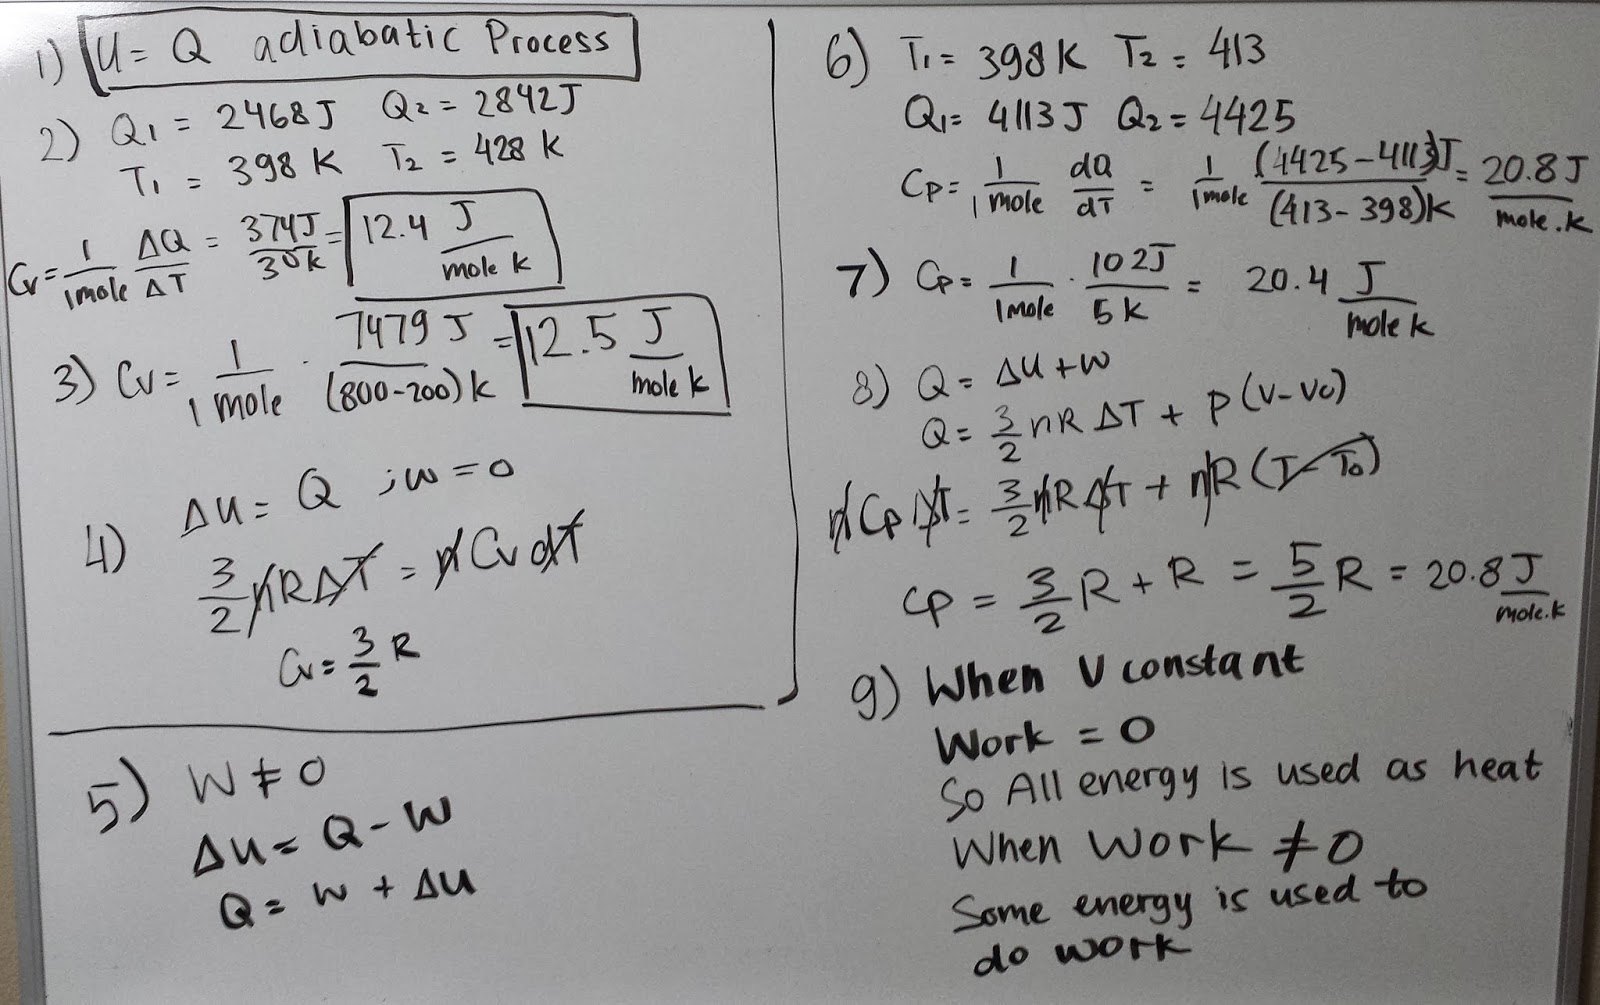 1) U = Q adiabatic Process
2) Q1 = 2468J Q2 = 2842J
T1 = 398 K T2 = 428 K
Cv = 1/1mole ΔQ/ΔT = 374J/30K = 12.4 J/mole k
3) Cv = 1/1 mole · 7479 J/(800-200)K = 12.5 J/mole k
4) ΔU = Q ; w = 0
3/2 nRΔT = nCv dT
Cv = 3/2 R
5) W ≠ 0
ΔU = Q - W
Q = W + ΔU
6) T1 = 398 K T2 = 413
Q1 = 4113 J Q2 = 4425
Cp = 1/1 mole dQ/dT = 1/1mole (4425-4113)J/(413-398)K = 20.8 J/mole.k
7) Cp = 1/1mole · 102J/5K = 20.4 J/mole k
8) Q = ΔU + W
Q = 3/2 nR ΔT + P(V-V0)
nCp ΔT = 3/2 nR ΔT + nR (T-T0)
Cp = 3/2 R + R = 5/2 R = 20.8 J/mole.k
9) When V constant
Work = 0
So All energy is used as heat
When Work ≠ 0
Some energy is used to
do work